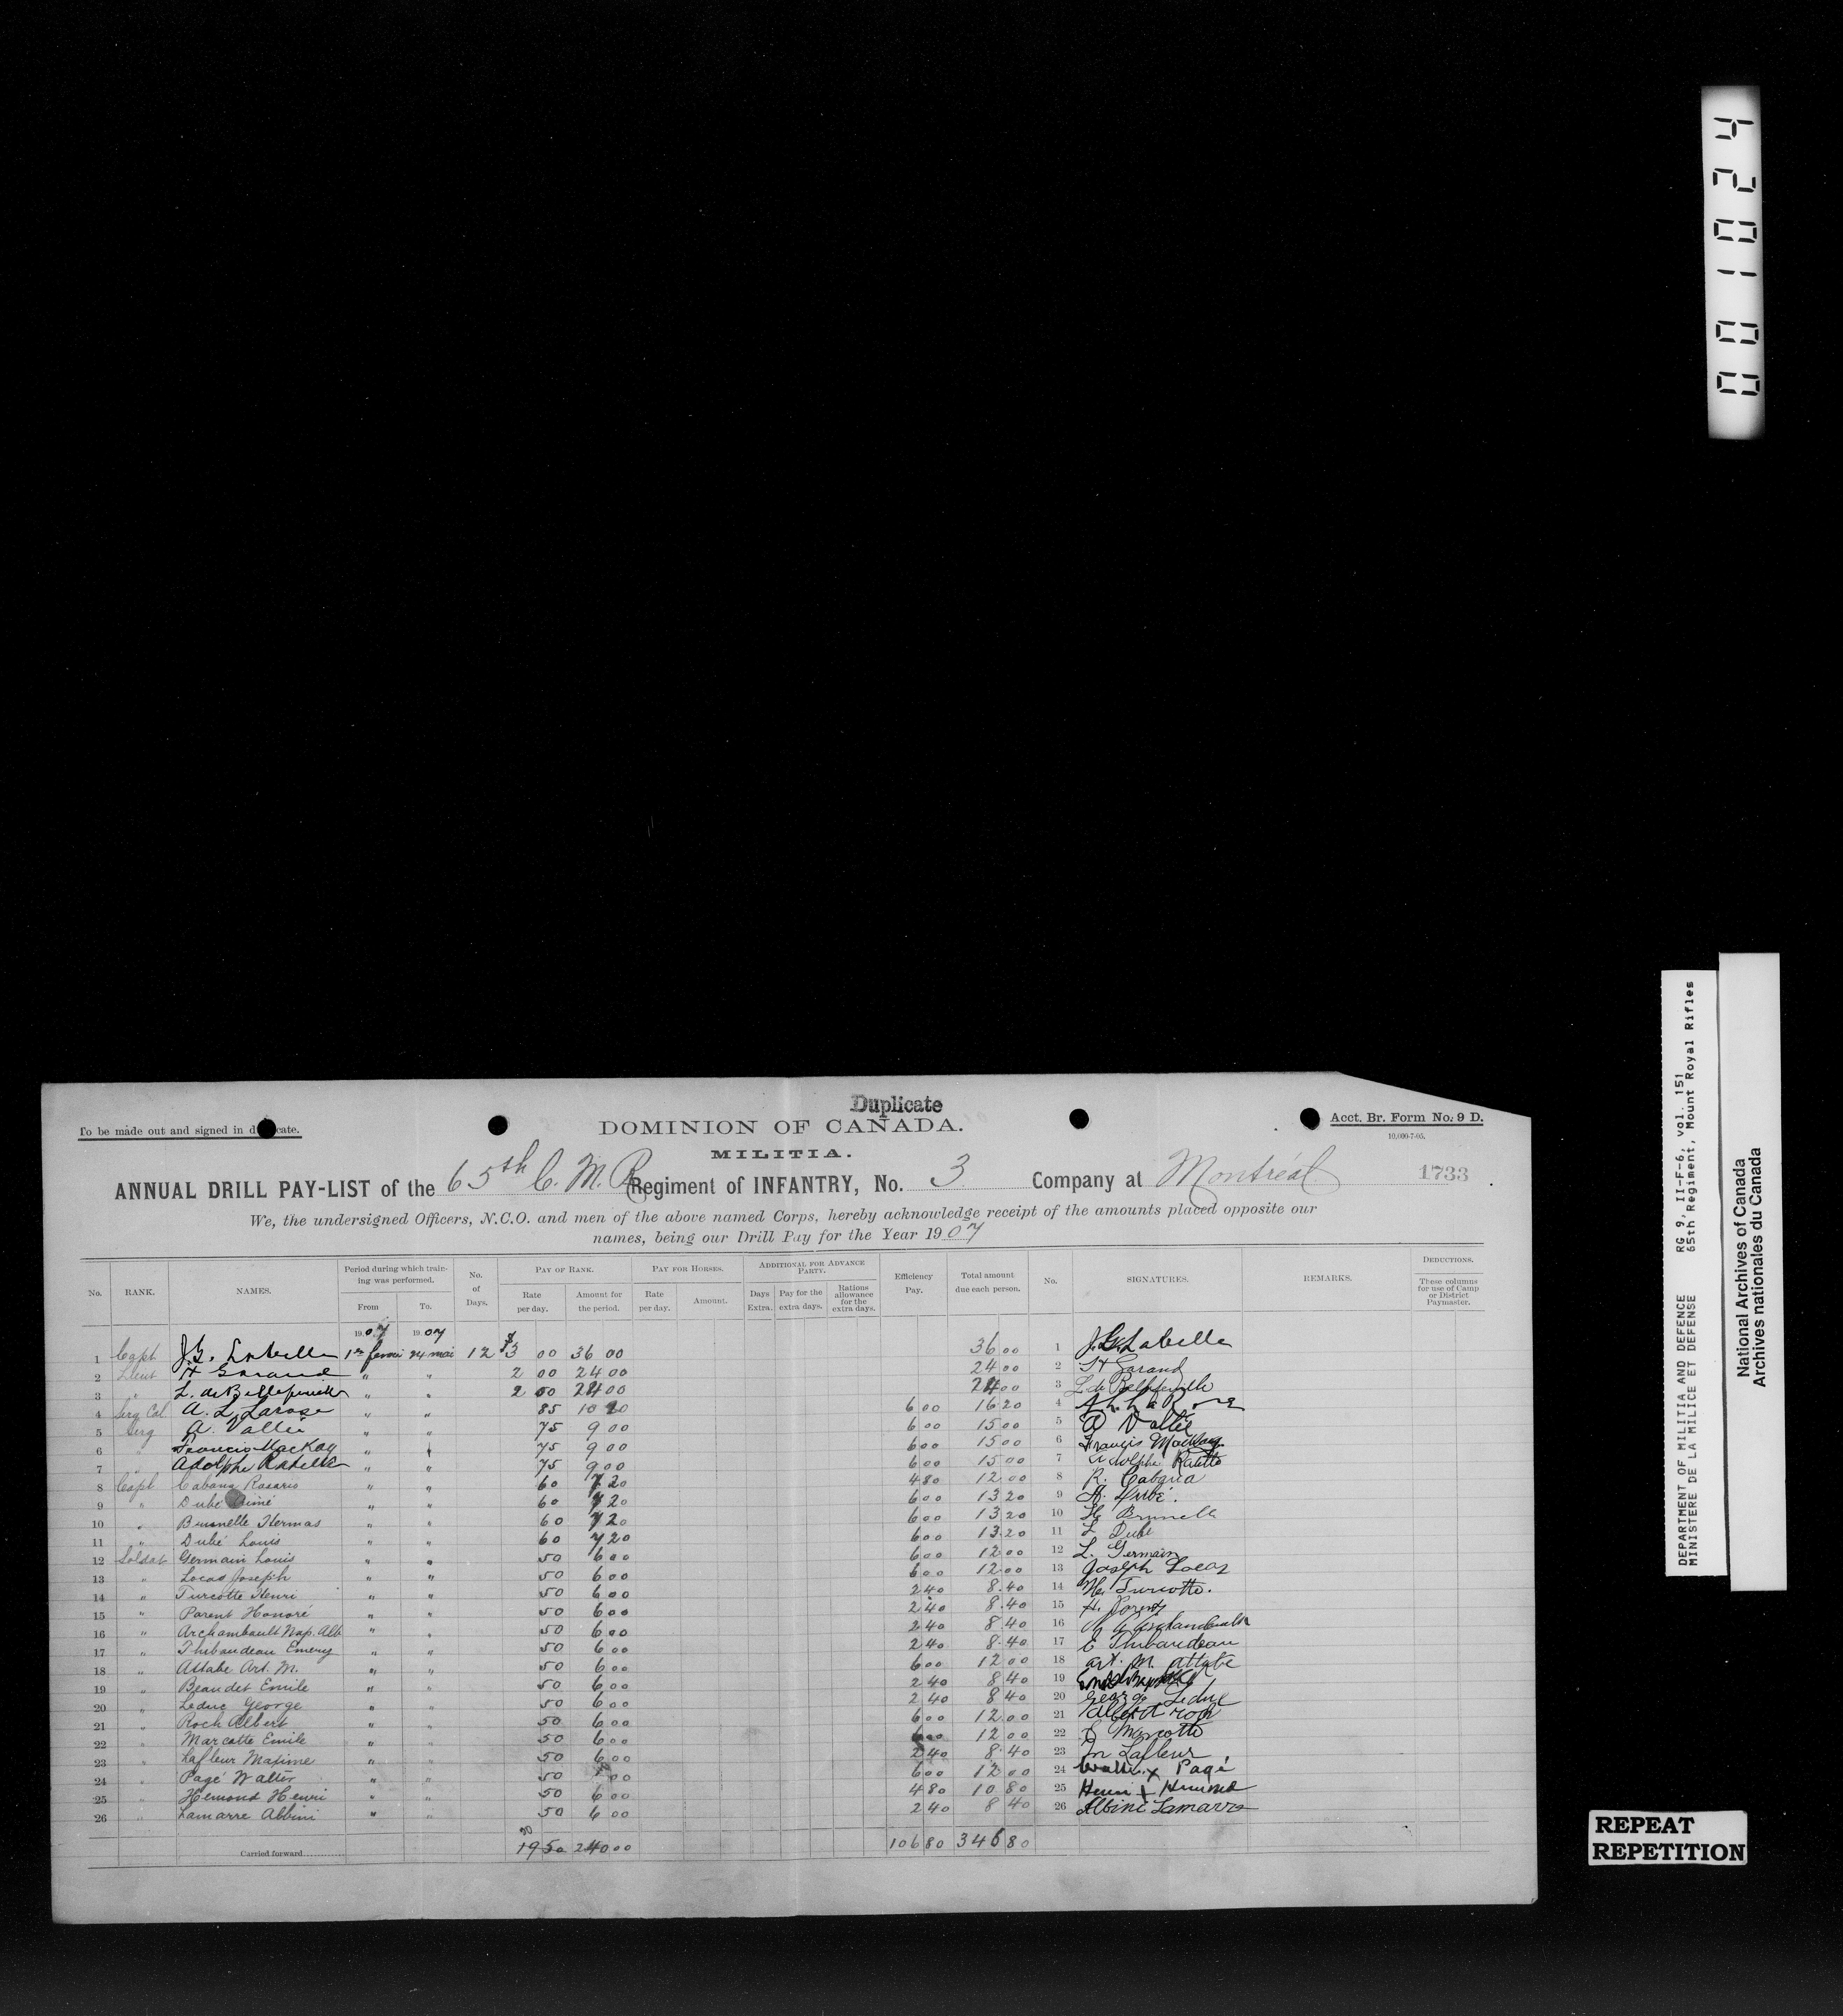 001024
DEPARTMENT OF MILITIA AND DEFENCE RG 9, II-F-6, vol. 151
MINISTERE DE LA MILICE ET DEFENSE 65th Regiment, Mount Royal Rifles
National Archives of Canada
Archives nationales du Canada
REPEAT
REPETITION
Duplicate
To be made out and signed in d cate.
DOMINION OF CANADA.
Acct. Br. Form No. 9 D.
10,000-7-05.
MILITIA.
ANNUAL DRILL PAY-LIST of the 65th C. M. R. Regiment of INFANTRY, No. 3 Company at Montréal 1733
We, the undersigned Officers, N.C.O. and men of the above named Corps, hereby acknowledge receipt of the amounts placed opposite our
names, being our Drill Pay for the Year 1907
No. RANK. NAMES. Period during which training was performed. From To. No. of Days. PAY OF RANK. Rate per day. Amount for the period. PAY FOR HORSES. Rate per day. Amount. ADDITIONAL FOR ADVANCE PARTY. Days Extra. Pay for the extra days. Rations allowance for the extra days. Efficiency Pay. Total amount due each person. No. SIGNATURES. REMARKS. DEDUCTIONS. These columns for use of Camp or District Paymaster.
1907 1907
1 Capt J.G. Labelle 1er 24 mai 12 $3 00 36 00 36 00 1 J.G. Labelle
2 Lieut H Garand " " 2 00 24 00 24 00 2 H Garand
3 " L. de Bellefeuille " " 2 00 24 00 24 00 3 L de Bellefeuille
4 Serg Col A. L. Larose " " 85 10 20 6 00 16 20 4 A. L. Larose
5 Serg A. Vallée " " 75 9 00 6 00 15 00 5 A Vallée
6 " Francis MacKay " " 75 9 00 6 00 15 00 6 Francis MacKay
7 " Adolphe Ratelle " " 75 9 00 6 00 15 00 7 Adolphe Ratelle
8 Capl Cabana Rosario " " 60 7 20 4 80 12 00 8 R. Cabana
9 " Dubé Aimé " " 60 7 20 6 00 13 20 9 A. Dubé.
10 " Brunelle Hermas " " 60 7 20 6 00 13 20 10 H. Brunelle
11 " Dubé Louis " " 60 7 20 6 00 13 20 11 L Dubé
12 Soldat Germain Louis " " 50 6 00 6 00 12 00 12 L. Germain
13 " Lucas Joseph " " 50 6 00 6 00 12 00 13 Joseph Lucas
14 " Turcotte Henri " " 50 6 00 2 40 8.40 14 H. Turcotte.
15 " Parent Honoré " " 50 6 00 2 40 8.40 15 H. Parent
16 " Archambault Nap. Alb " " 50 6 00 2 40 8 40 16 N A Archambault
17 " Thibaudeau Emery " " 50 6 00 2 40 8.40 17 E Thibaudeau
18 " Attabe Art. M. " " 50 6 00 6 00 12 00 18 art. M. Attabe
19 " Beaudet Emile " " 50 6 00 2 40 8 40 19
20 " Leduc George " " 50 6 00 2 40 8 40 20 George Leduc
21 " Roch Albert " " 50 6 00 6 00 12 00 21 Albert roch
22 " Marcotte Emile " " 50 6 00 6 00 12 00 22 E Marcotte
23 " Lafleur Maxime " " 50 6 00 2 40 8.40 23 M Lafleur
24 " Pagé Walter " " 50 6 00 6 00 12 00 24 Walter x Pagé
25 " Hemond Henri " " 50 6 00 4 80 10 80 25 Henri x Hemond
26 " Lamarre Albini " " 50 6 00 2 40 8 40 26 Albini Lamarre
Carried forward 19 50 240 00 106 80 346 80